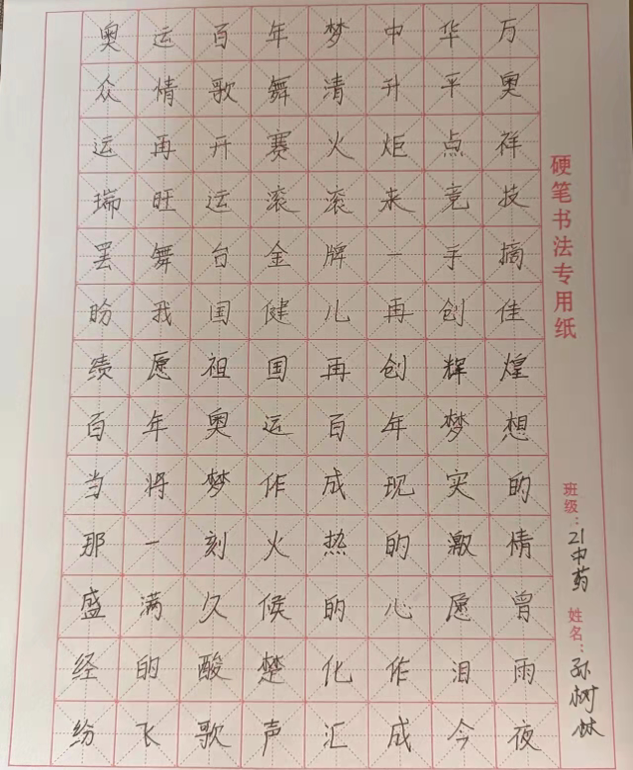 奥运百年梦中华万
众情歌舞清升平奥
运再开赛火炬点祥
瑞旺运滚滚来竞技
罢舞台金牌一手摘
盼我国健儿再创佳
绩愿祖国再创辉煌
百年奥运百年梦想
当将梦作成现实的
那一刻火热的激情
盛满久候的心愿曾
经的酸楚化作泪雨
纷飞歌声汇成今夜
硬笔书法专用纸
班级：21中药 姓名：孙树林